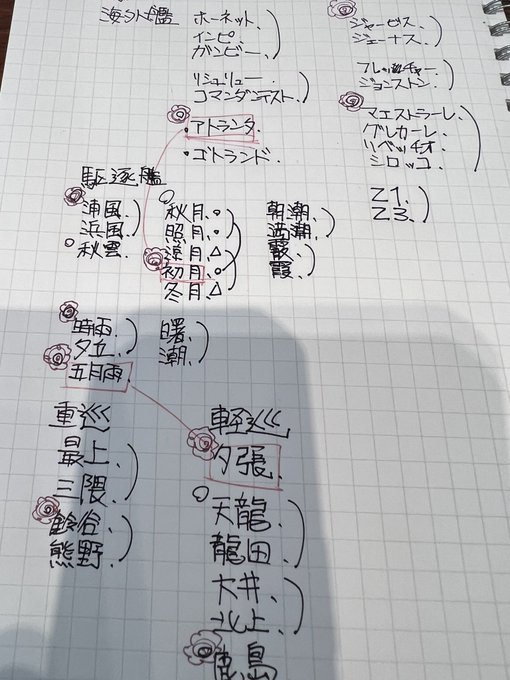 海外艦
ホーネット.
インピ.
ガンビー.
リシュリュー.
コマンダンテスト.
・アトランタ.
・ゴトランド.
ジャービス.
ジェーナス.
フレッチャー.
ジョンストン.
マエストラーレ.
グレカーレ.
リベッチオ
シロッコ.
Z1.
Z3.
駆逐艦
浦風.
浜風.
○秋雲.
秋月.○
照月.○
涼月.△
初月.○
冬月.△
朝潮.
満潮.
霰.
霞.
時雨.
夕立.
五月雨.
曙.
潮.
重巡
最上.
三隈.
鈴谷.
熊野.
軽巡
夕張.
天龍.
龍田.
大井.
北上.
鹿島